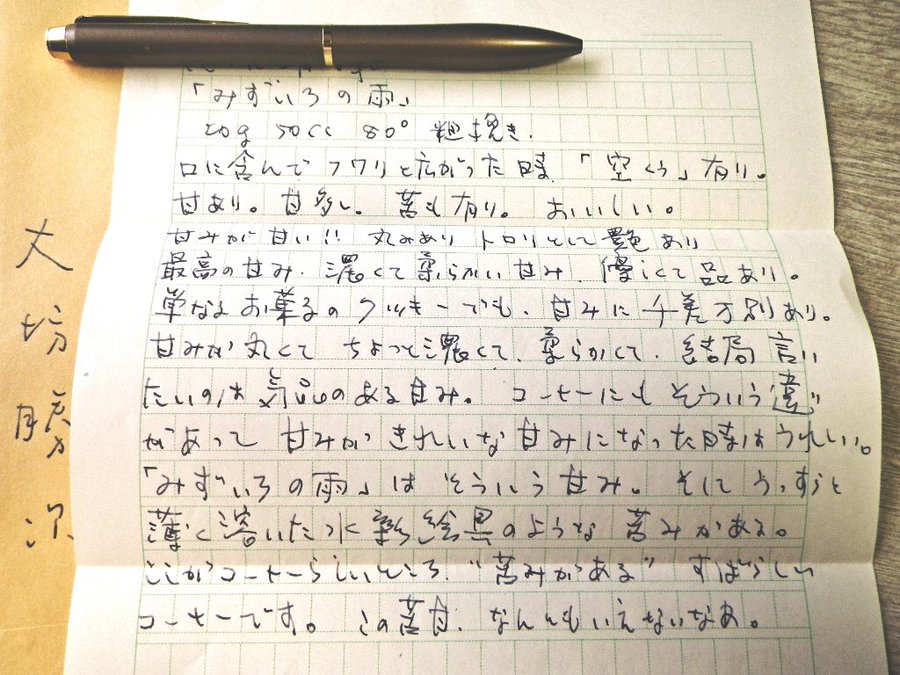 「みずいろの雨」
20g 50cc 80° 粗挽き.
口に含んで フワリと広がった時 「空くう」有り。
甘あり。甘多し. 苦も有り。 おいしい。
甘みが甘い!! 丸みあり トロリとして艶あり
最高の甘み. 濃くて柔らかい甘み. 優しくて品あり。
単なるお菓子のクッキーでも. 甘みに千差万別あり。
甘みが丸くて ちょっと濃くて. 柔らかくて. 結局言い
たいのは気品のある甘み。 コーヒーにもそういう違い
があって 甘みがきれいな甘みになった時はうれしい。
「みずいろの雨」はそういう甘み。そしてうっすらと
薄く溶いた水彩絵具のような 苦みがある。
ここがコーヒーらしいところ. "苦みがある" すばらしい
コーヒーです。 この苦甘. なんともいえないなあ。
大坊勝次